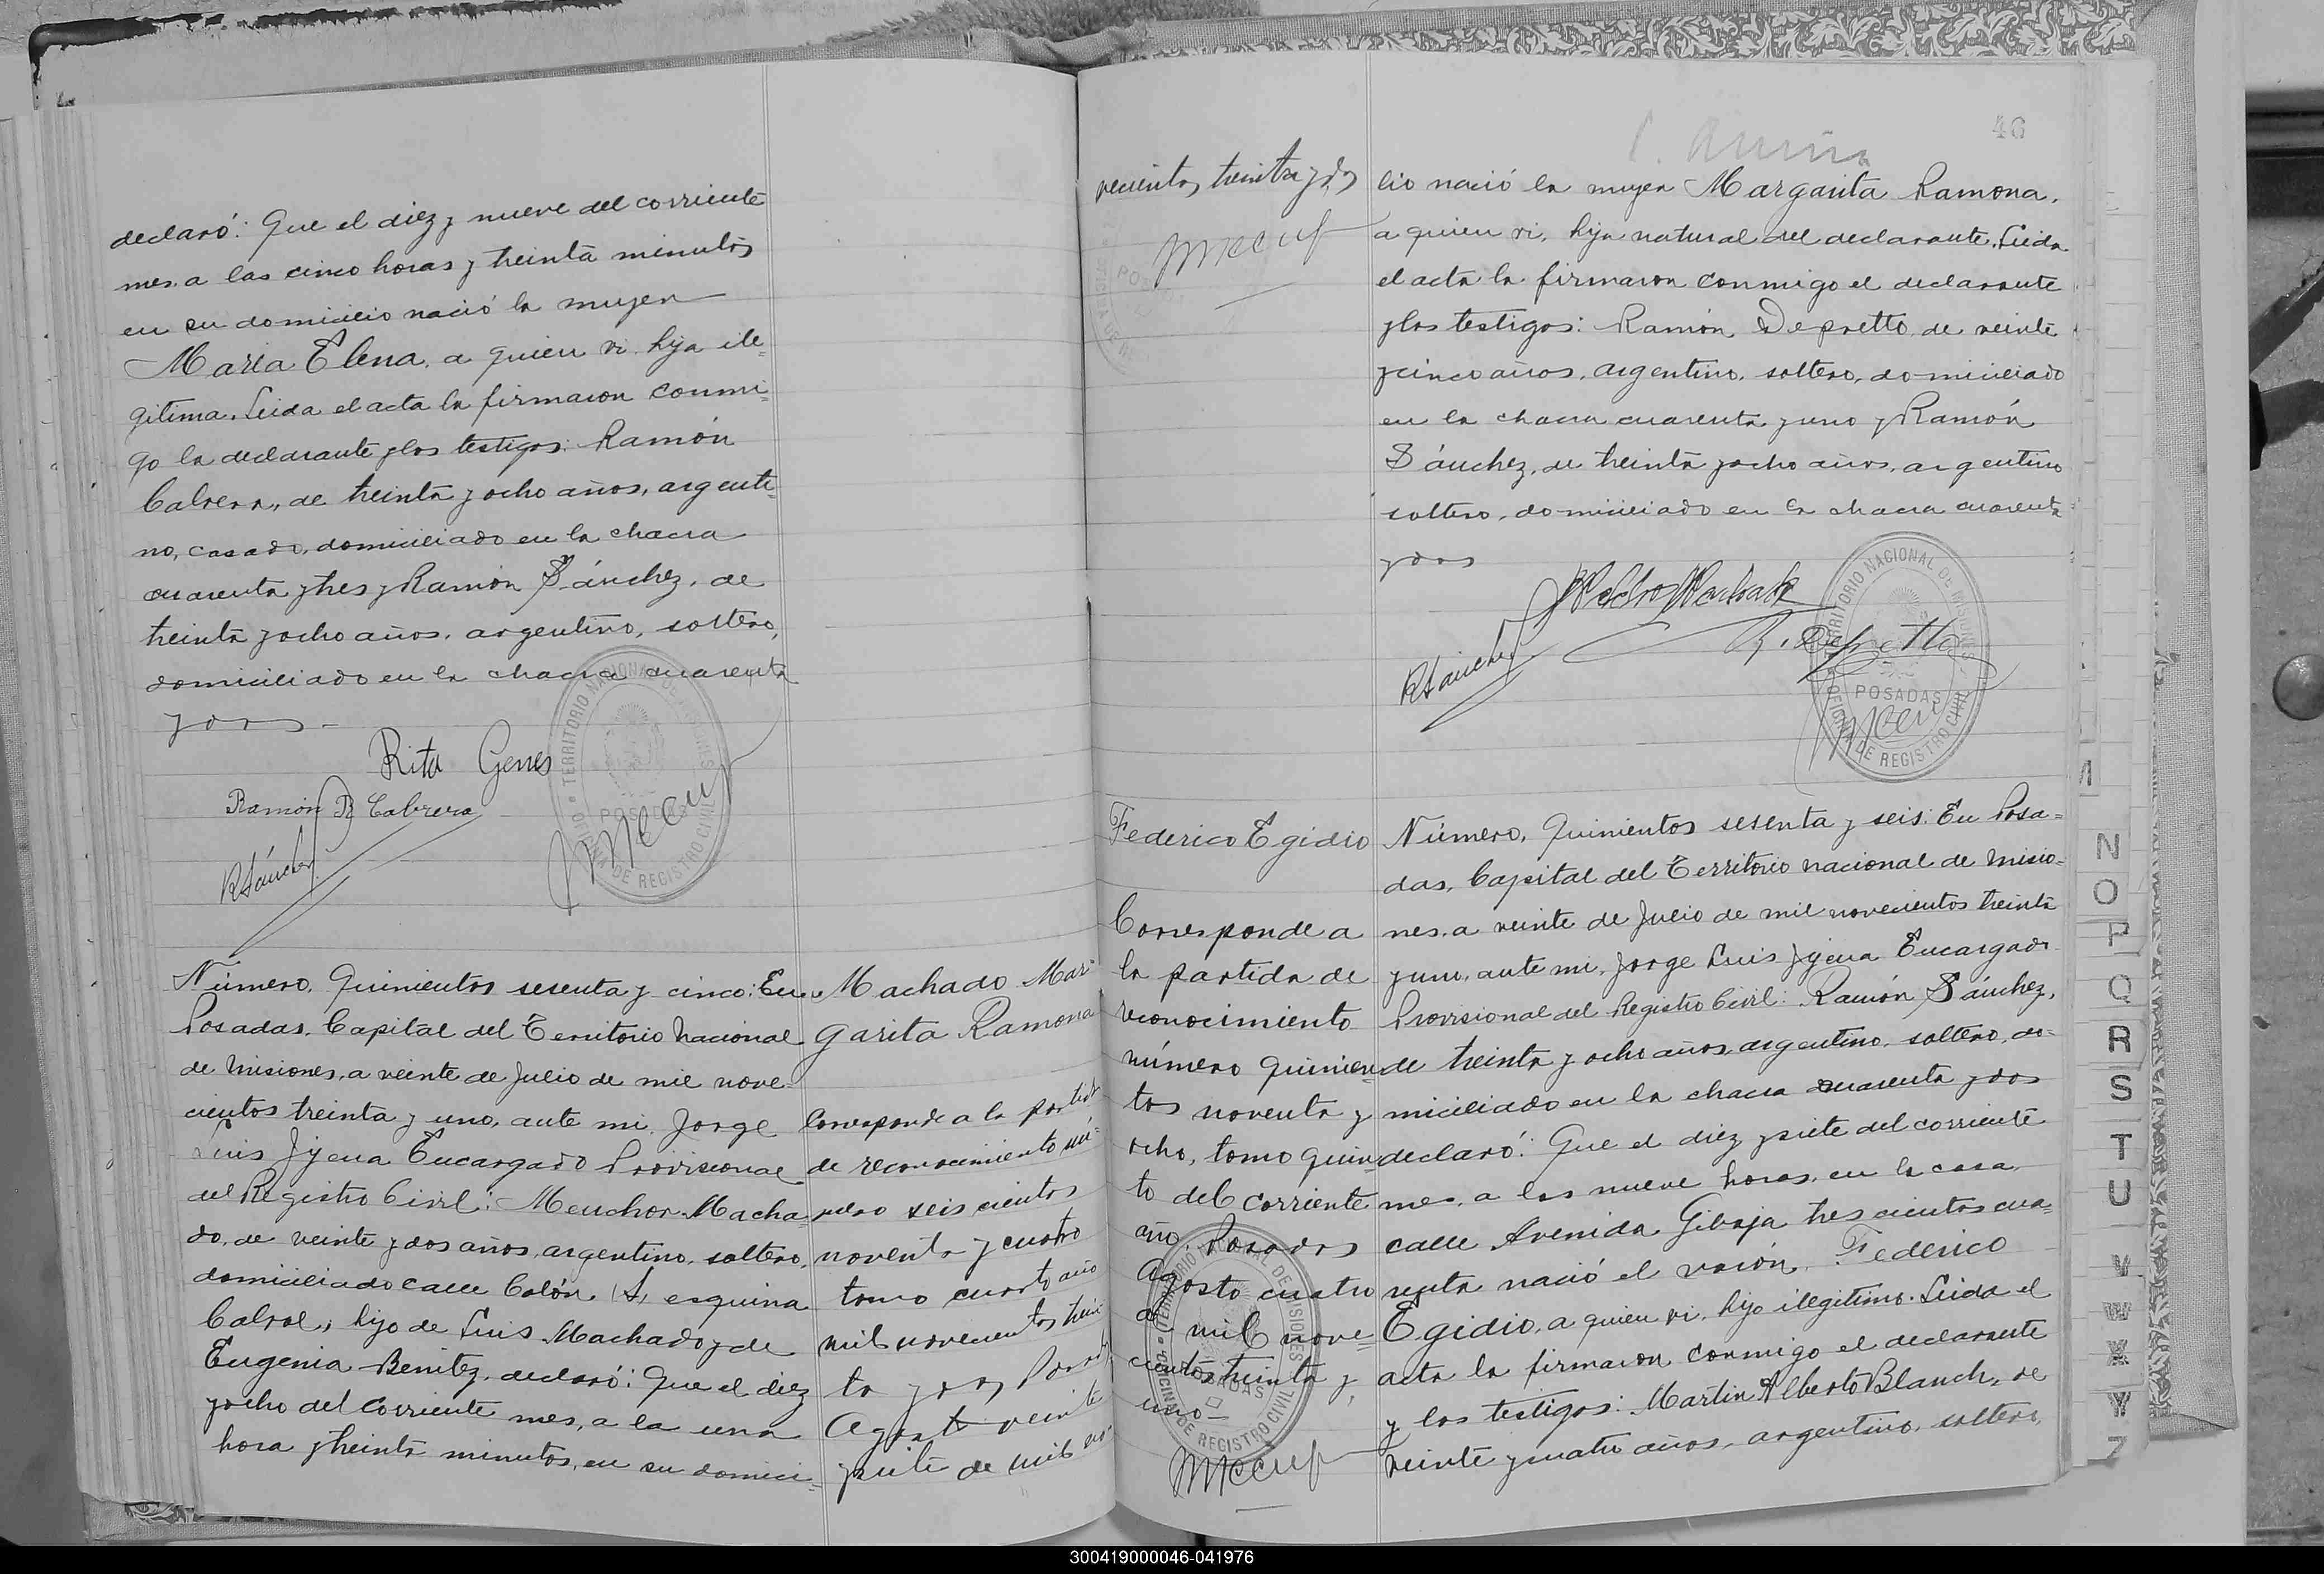 declaró: Que el diez y nueve del corriente
mes. a las cinco horas y treinta minutos
en su domicilio nació la mujer
María Elena, a quien vi hija ile=
gitima. Leida el acta la firmaron conmi=
go la declarante y los testigos: Ramón
Cabrera, de treinta y ocho años, argenti=
no, casado, domiciliado en la chacra
cuarenta y tres y Ramón Sánchez, de
treinta y ocho años, argentino, soltero,
domiciliado en la chacra cuarenta
y dos -
Rita Genes
Ramón B Cabrera
RSánchez
TERRITORIO NACIONAL DE MISIONES
POSADAS
OFICINA DE REGISTRO CIVIL
Número. Quinientos sesenta y cinco: En
Posadas. Capital del Territorio Nacional
de Misiones, a veinte de Julio de mil nove-
cientos treinta y uno, ante mi, Jorge
Luis Encargado Provisional
del Registro Civil: Meuchor Macha=
do, de veinte y dos años, argentino, soltero,
domiciliado calle Colón esquina
Cabral, hijo de Luis Machado y de
Eugenia Benitez, declaró: Que el diez
y ocho del corriente mes, a la una
hora y treinta minutos, en su domici=
Machado Mar=
garita Ramona
Corresponde a la partida
de reconocimiento nú=
mero seiscientos
noventa y cuatro
tomo cuarto año
mil novecientos trein
ta y dos Posadas
Agosto veinte
y siete de mil no-
vecientos treinta y dos
46
lio nació la mujer Margarita Ramona,
a quien vi, hija natural del declarante. Leida
el acta la firmaron conmigo el declarante
y los testigos: Ramón Depretto, de veinte
y cinco años, argentino, soltero, domiciliado
en la chacra cuarenta y uno y Ramón
Sánchez, de treinta y ocho años, argentino
soltero, domiciliado en la chacra cuarenta
y dos
RSánchez
R. Depretto
TERRITORIO NACIONAL DE MISIONES
POSADAS
OFICINA DE REGISTRO CIVIL
Federico Egidio
Corresponde a
la partida de
reconocimiento
número quinien=
tos noventa y
ocho, tomo quin=
to del corriente
año. Posadas
Agosto cuatro
de mil nove=
cientos treinta y
uno -
TERRITORIO NACIONAL DE MISIONES
POSADAS
OFICINA DE REGISTRO CIVIL
Número, Quinientos sesenta y seis: En Posa=
das, Capital del Territorio nacional de Misio=
nes, a veinte de Julio de mil novecientos treinta
y uno, ante mi, Jorge Luis Encargado
Provisional del Registro Civil: Ramón Sánchez,
de treinta y ocho años, argentino, soltero, do=
miciliado en la chacra cuarenta y dos
declaró: Que el diez y siete del corriente
mes, a las nueve horas, en la casa
calle Avenida Gibaja trescientos cua=
renta nació el varón Federico
Egidio, a quien vi, hijo ilegitimo. Leida el
acta la firmaron conmigo el declarante
y los testigos: Martin Alberto Blanch, de
veinte y cuatro años, argentino, soltero,
N
O
P
Q
R
S
T
U
V
W
X
Y
Z
300419000046-041976